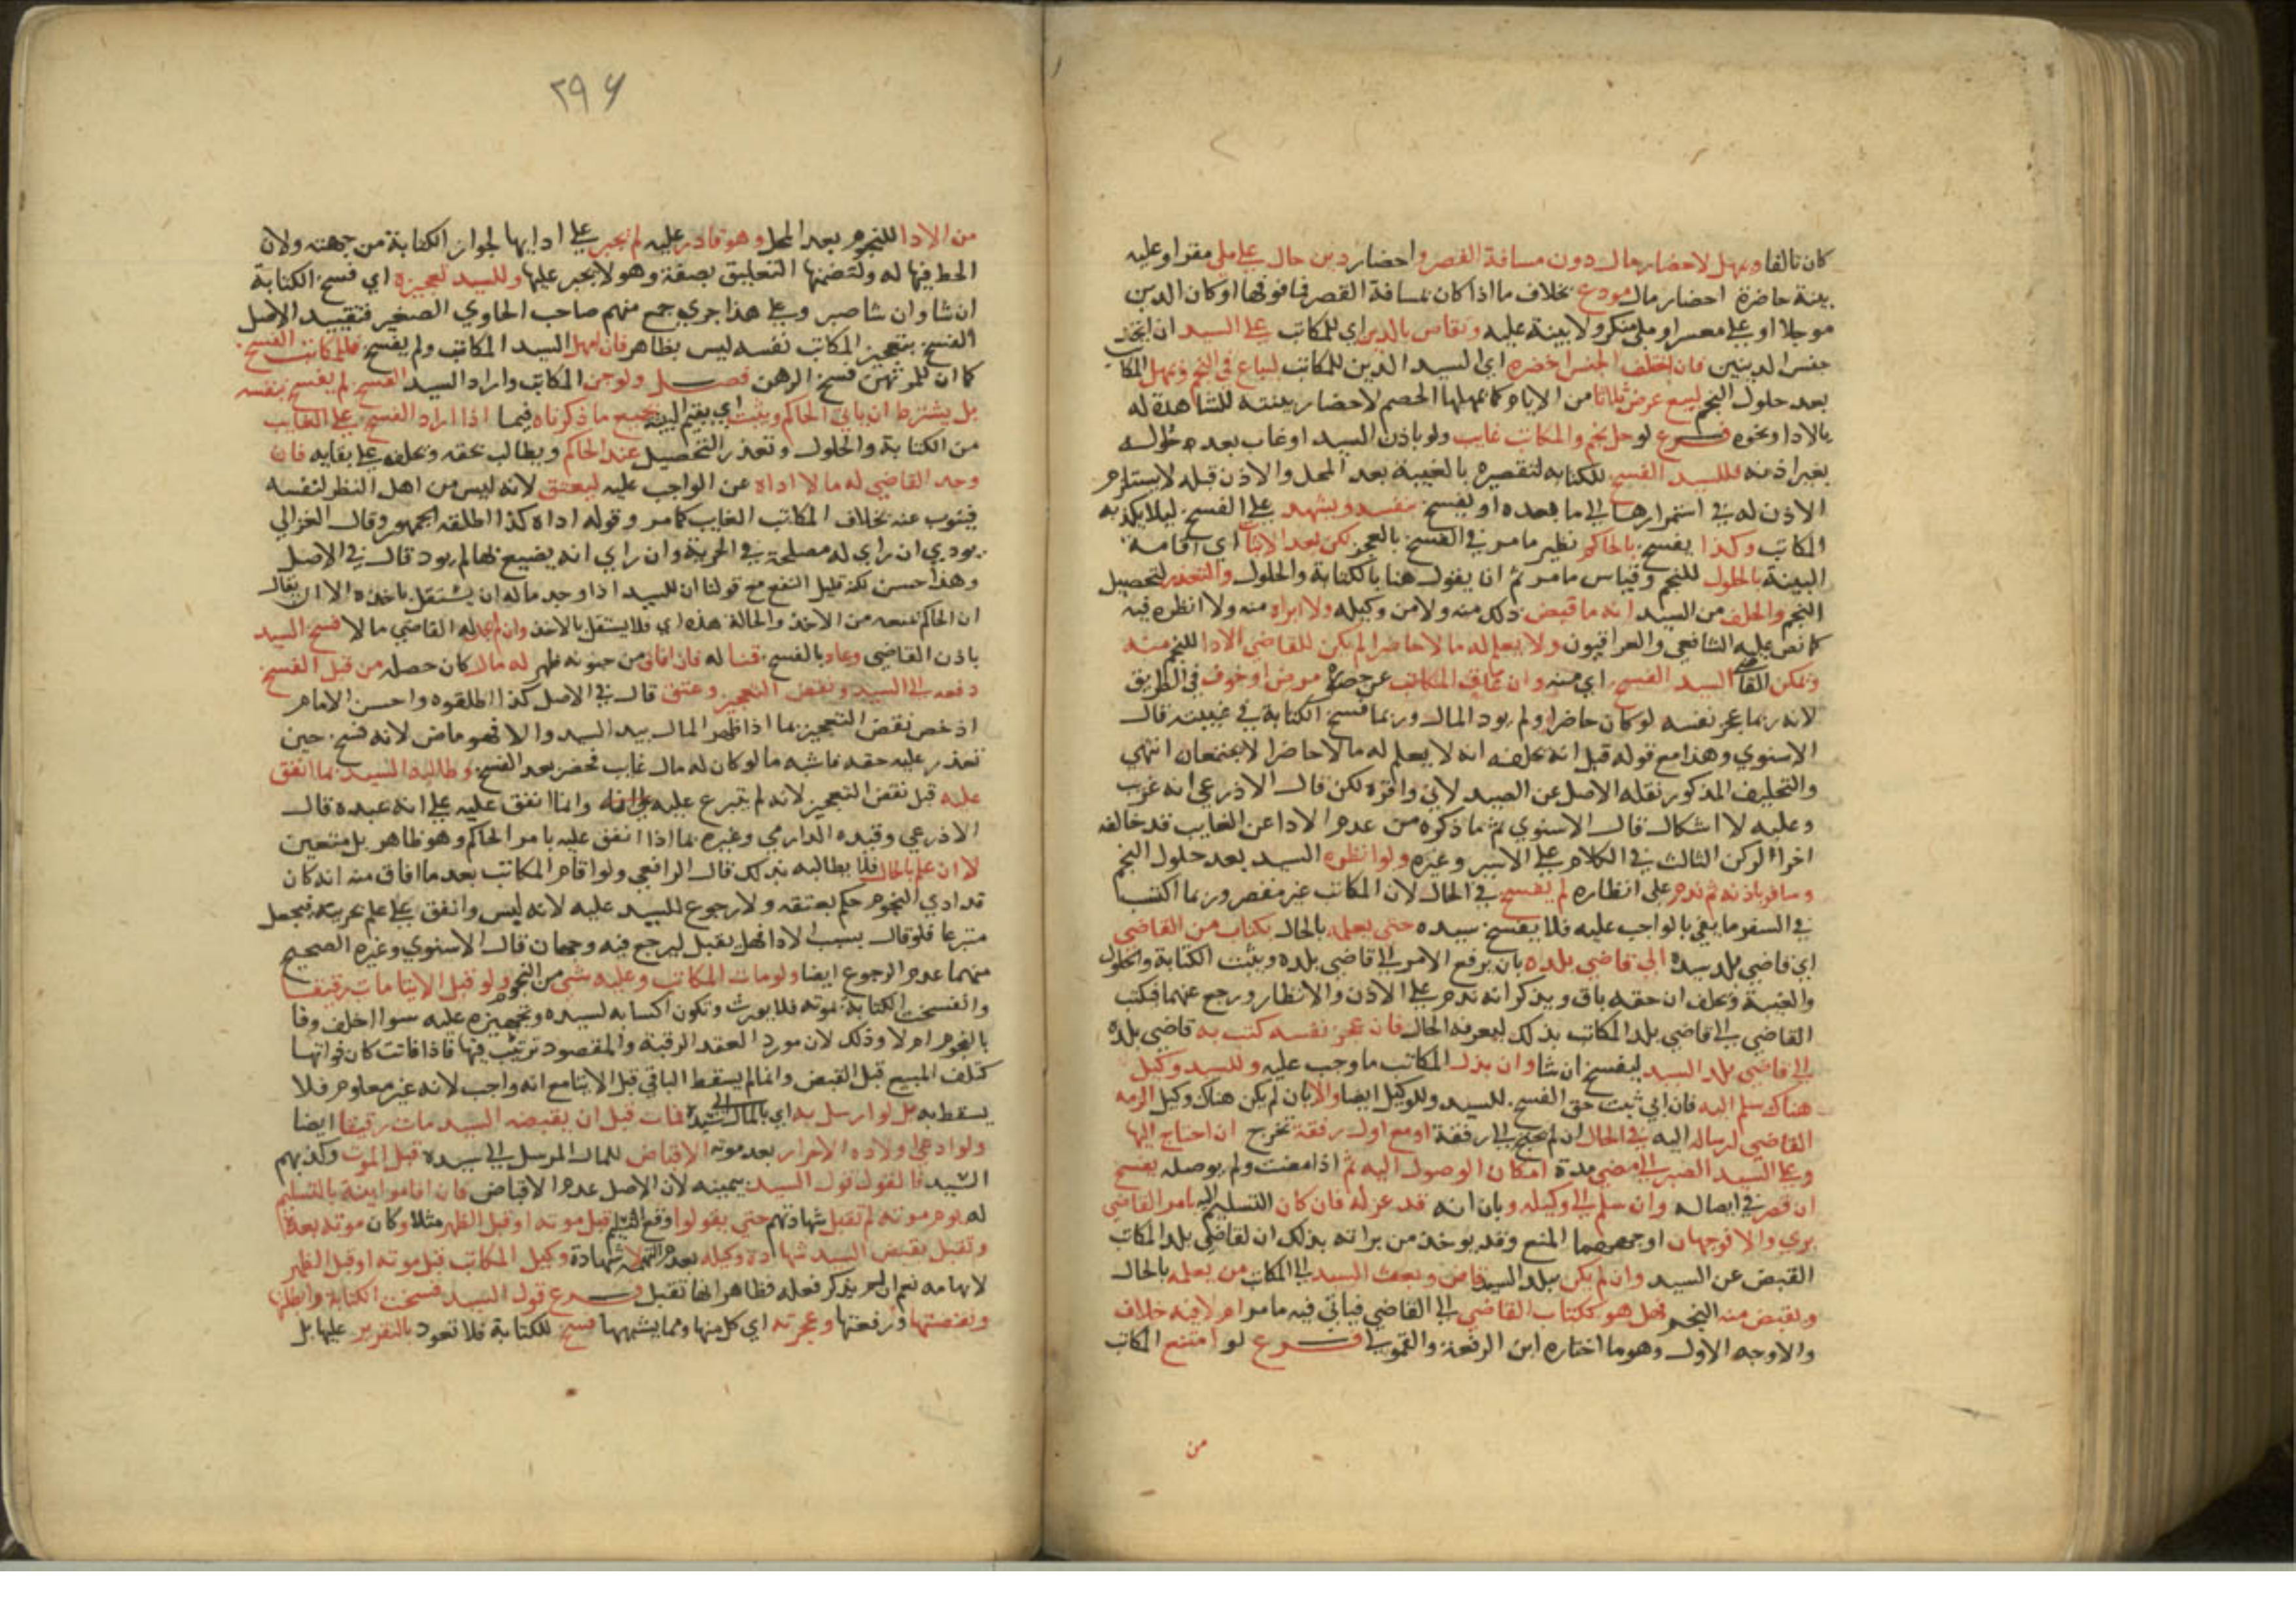 كان تالفا ويمهل لاحضار مال دون مسافة القصر واحضار دين حال على ملي مقر او عليه
بينة حاضرة احضار مال مودع بخلاف ما اذا كان بمسافة القصر فما فوقها او كان الدين
موجلا او على معسر او ملي منكر ولا بينة عليه وتقاص بالدين اي للمكاتب على السيد ان اتحد
جنس الدينين فان اختلف الجنس احضره اي السيد الدين للمكاتب ليباع في النجم ويمهل المكاتب
بعد حلول النجم لبيع عرض ثلاثا من الايام كما يمهلها الخصم لاحضار بينته للشاهدة له
بالادا ونحوه فرع لو حل نجم والمكاتب غايب ولو باذن السيد او غاب بعد حلوله
بغير اذنه فللسيد الفسخ للكتابة لتقصيره بالغيبة بعد المحل والاذن قبله لا يستلزم
الاذن له في استمرارها الى ما بعده او يفسخ بنفسه ويشهد على الفسخ ليلا يكذبه
المكاتب وكذا يفسخ بالحاكم نظير ما مر في الفسخ بالعجز لكن بعد الاثبات اي اقامة
البينة بالحلول للنجم وقياس ما مر ثم ان يقول هنا بالكتابة والحلول والتعذر لتحصيل
النجم والحلف من السيد انه ما قبض ذلك منه ولا من وكيله ولا ابراه منه ولا انظره فيه
كما نص عليه الشافعي والعراقيون ولا يعلم له مالا حاضرا لم يكن للقاضي الادا للنجم منه
ويمكن القاضي السيد الفسخ اي منه وان عاق المكاتب عن حضوره مرض او خوف في الطريق
لانه ربما عجز نفسه لو كان حاضرا ولم يود المال وربما فسخ الكتابة في غيبته قال
الاسنوي وهذا مع قوله قبل انه يحلفه انه لا يعلم له مالا حاضرا لا يجتمعان انتهى
والتحليف المذكور نقله الاصل عن الصيدلاني واقره لكن قال الاذرعي انه غريب
وعليه لا اشكال قال الاسنوي ثم ما ذكره من عدم الادا عن الغايب قد خالفه
اخر الركن الثالث في الكلام على الاسير وغيره ولو انظره السيد بعد حلول النجم
وسافر باذنه ثم ندم على انظاره لم يفسخ في الحال لان المكاتب غير مقصر وربما اكتسب
في السفر ما يفي بالواجب عليه فلا يفسخ سيده حتى يعلمه بالحال بكتاب من القاضي
اي قاضي بلد سيده الى قاضي بلده بان يرفع الامر الى قاضي بلده ويثبت الكتابة والحلول
والغيبة ويحلف ان حقه باق ويذكر انه ندم على الاذن والانظار ورجع عنهما فيكتب
القاضي الى قاضي بلد المكاتب بذلك ليعرفه الحال فان عجز نفسه كتب به قاضي بلده
الى قاضي بلد السيد ليفسخ ان شا وان بذل المكاتب ما وجب عليه وللسيد وكيل
هناك سلم اليه فان ابى ثبت حق الفسخ للسيد وللوكيل ايضا والا بان لم يكن هناك وكيل الزمه
القاضي ارساله اليه في الحال ان لم يحتج الى رفقة او مع اول رفقة تخرج ان احتاج اليها
وعلى السيد الصبر الى مضي مدة امكان الوصول اليه ثم اذا مضت ولم يوصله يفسخ
ان قصر في ايصاله وان سلم الى وكيله وبان انه قد عزله فان كان التسليم اليه بامر القاضي
بري والا فوجهان اوجههما المنع وقد يوخذ من براته بذلك ان لقاضي بلد المكاتب
القبض عن السيد وان لم يكن ببلد السيد قاض وبعث السيد الى المكاتب من يعلمه بالحال
ويقبض منه النجم فهل هو ككتاب القاضي الى القاضي فياتي فيه ما مر ام لا فيه خلاف
والاوجه الاول وهو ما اختاره ابن الرفعة والقمولي فرع لو امتنع المكاتب
من
٢٩٤
من الادا للنجوم بعد المحل وهو قادر عليه لم يجبر على ادايها لجواز الكتابة من جهته ولان
الحظ فيها له ولتضمنها التعليق بصفة وهو لا يجبر عليها وللسيد تعجيزه اي فسخ الكتابة
ان شا وان شا صبر وعلى هذا جرى جمع منهم صاحب الحاوي الصغير فتقييد الاصل
الفسخ بتعجيز المكاتب نفسه ليس بظاهر فان امهل السيد المكاتب ولم يفسخ فللمكاتب الفسخ
كما ان للمرتهن فسخ الرهن فصل ولو جن المكاتب واراد السيد الفسخ لم يفسخ بنفسه
بل يشترط ان ياتي الحاكم ويثبت اي يقيم البينة بجميع ما ذكرناه فيما اذا اراد الفسخ على الغايب
من الكتابة والحلول وتعذر التحصيل عند الحاكم ويطالب بحقه ويحلفه على بقايه فان
وجد القاضي له مالا اداه عن الواجب عليه ليعتق لانه ليس من اهل النظر لنفسه
فينوب عنه بخلاف المكاتب الغايب كما مر وقوله اداه كذا اطلقه الجمهور وقال الغزالي
يودي ان راى له مصلحة في الحرية وان راى انه يضيع بها لم يود قال في الاصل
وهذا حسن لكنه قليل النفع مع قولنا ان للسيد اذا وجد ماله ان يستقل باخذه الا ان يقال
ان الحاكم يمنعه من الاخذ والحالة هذه اي فلا يستقل بالاخذ وان لم يجد له القاضي مالا فسخ السيد
باذن القاضي وعاد بالفسخ قنا له فان افاق من جنونه فظهر له مال كان حصله من قبل الفسخ
دفعه الى السيد ونقض التعجيز وعتق قال في الاصل كذا اطلقوه واحسن الامام
اذ خص نقض التعجيز بما اذا ظهر المال بيد السيد والا فهو ماض لانه فسخ حين
تعذر عليه حقه فاشبه ما لو كان له مال غاب فحضر بعد الفسخ وطالبه السيد بما انفق
عليه قبل نقض التعجيز لانه لم يتبرع عليه وانما انفق عليه على انه عبده قال
الاذرعي وقيده الدارمي وغيره بما اذا انفق عليه بامر الحاكم وهو ظاهر بل متعين
لا ان علم بالحال فلا يطالبه بذلك قال الرافعي ولو اقام المكاتب بعد ما افاق منه انه كان
قد ادى النجوم حكم بعتقه ولا رجوع للسيد عليه لانه لبس وانفق على علم بحريته فيجعل
متبرعا فلو قال نسيت الادا فهل يقبل ليرجع فيه وجهان قال الاسنوي وغيره الصحيح
منهما عدم الرجوع ايضا ولو مات المكاتب وعليه شي من النجوم ولو قبل الايتا مات رقيقا
وانفسخت الكتابة بموته فلا يورث وتكون اكسابه لسيده وتجهيزه عليه سوا اخلف وفا
بالنجوم ام لا وذلك لان مورد العقد الرقبة والمقصود ترتيب فيها فاذا فاتت كان فواتها
كتلف المبيع قبل القبض وانما لم يسقط الباقي قبل الايتا مع انه واجب لانه غير معلوم فلا
يسقط به بل لو ارسل به اي بالمال الى سيده فمات قبل ان يقبضه السيد مات رقيقا ايضا
ولو ادعى اولاده الاحرار بعد موته الاقباض للمال المرسل الى سيده قبل الموت وكذبهم
السيد فالقول قول السيد بيمينه لان الاصل عدم الاقباض فان اقاموا بينة بالتسليم
له يوم موته لم تقبل شهادتهم حتى يقولوا وقع التسليم قبل موته او قبل الظهر مثلا وكان موته بعدها
وتقبل بقبض السيد شهادة وكيله بعدم التهمة لا شهادة وكيل المكاتب قبل موته او قبل الظهر
لايهامه نعم ان لم يذكر فعله فظاهر انها تقبل فرع قول السيد فسخت الكتابة وابطلتها
ونقضتها ورفعتها وعجزته اي كل منها ومما يشبهها فسخ للكتابة فلا تعود بالتقرير عليها بل